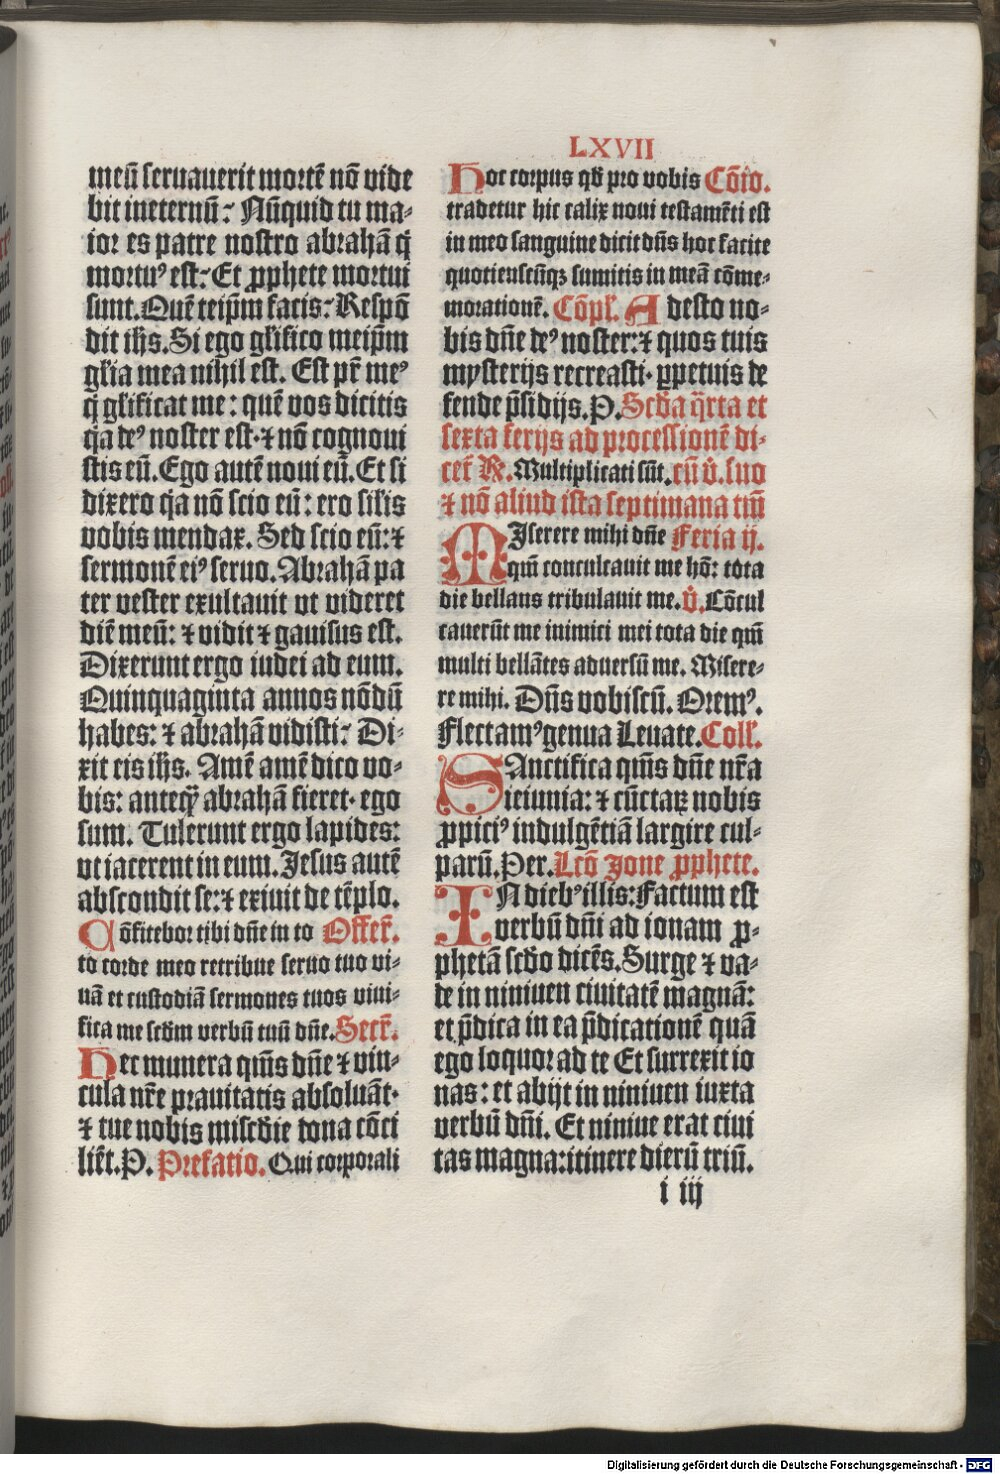 LXVII
meū seruauerit mortē nō vide
bit ineternū? Nūquid tu ma-
ior es patre nostro abrahā q̄
mortuꝰ est? Et ꝓphete mortui
sunt. Quē teip̄m facis? Respō
dit ih̄s. Si ego glīfico meip̄m
gl̄ia mea nihil est. Est pr̄ meꝰ
q̄ glīficat me: quē vos dicitis
q̄a deꝰ noster est. ⁊ nō cognoui
stis eū. Ego autē noui eū. Et si
dixero q̄a nō scio eū: ero silis
vobis mendax. Sed scio eū: ⁊
sermonē eiꝰ seruo. Abrahā pa
ter vester exultauit vt videret
diē meū: ⁊ vidit ⁊ gauisus est.
Dixerunt ergo iudei ad eum.
Quinquaginta annos nōdū
habes: ⁊ abrahā vidisti? Di-
xit eis ih̄s. Amē amē dico vo-
bis: anteq̄ꝫ abrahā fieret. ego
sum. Tulerunt ergo lapides:
vt iacerent in eum. Jesus autē
abscondit se: ⁊ exiuit de tēplo.
Cōfitebor tibi dn̄e in to Offer̄.
to corde meo retribue seruo tuo vi-
uā et custodiā sermones tuos viui-
fica me scd̄m verbū tuū dn̄e. Secr̄.
Hec munera qm̄s dn̄e ⁊ vin-
cula nr̄e prauitatis absoluāt.
⁊ tue nobis miscd̄ie dona cōci
liēt. P. Prefatio. Qui corporali
Hoc corpus qd̄ pro vobis Cōio.
tradetur hic calix noui testamēti est
in meo sanguine dicit dn̄s hoc facite
quotienscūqꝫ sumitis in meā cōme-
morationē. Cōpl̄. Adesto no-
bis dn̄e deꝰ noster: ⁊ quos tuis
mysterijs recreasti. ꝑpetuis de
fende p̄sidijs. P. Scd̄a q̄rta et
sexta ferijs ad processionē di-
cet̄ R̄. Multiplicati sūt. cū v̄. suo
⁊ nō aliud ista septimana tm̄
MIserere mihi dn̄e Feria ij.
qm̄ conculcauit me hō: tota
die bellans tribulauit me. v̄. Cōcul
cauerūt me inimici mei tota die qm̄
multi bellātes aduersū me. Misere-
re mihi. Dn̄s vobiscū. Oremꝰ.
Flectamꝰ genua Leuate. Coll̄.
SAnctifica qm̄s dn̄e nr̄a
ieiunia: ⁊ cūctaꝝ nobis
ꝓpiciꝰ indulgētiā largire cul-
parū. Per. Lcō Jone ꝓphete.
IN diebꝰ illis: Factum est
verbū dn̄i ad ionam ꝓ-
phetā scd̄o dicēs. Surge ⁊ va-
de in niniuen ciuitatē magnā:
et p̄dica in ea p̄dicationē quā
ego loquor ad te Et surrexit io
nas: et abijt in niniuen iuxta
verbū dn̄i. Et niniue erat ciui
tas magna: itinere dierū triū.
i iij
Digitalisierung gefördert durch die Deutsche Forschungsgemeinschaft - DFG